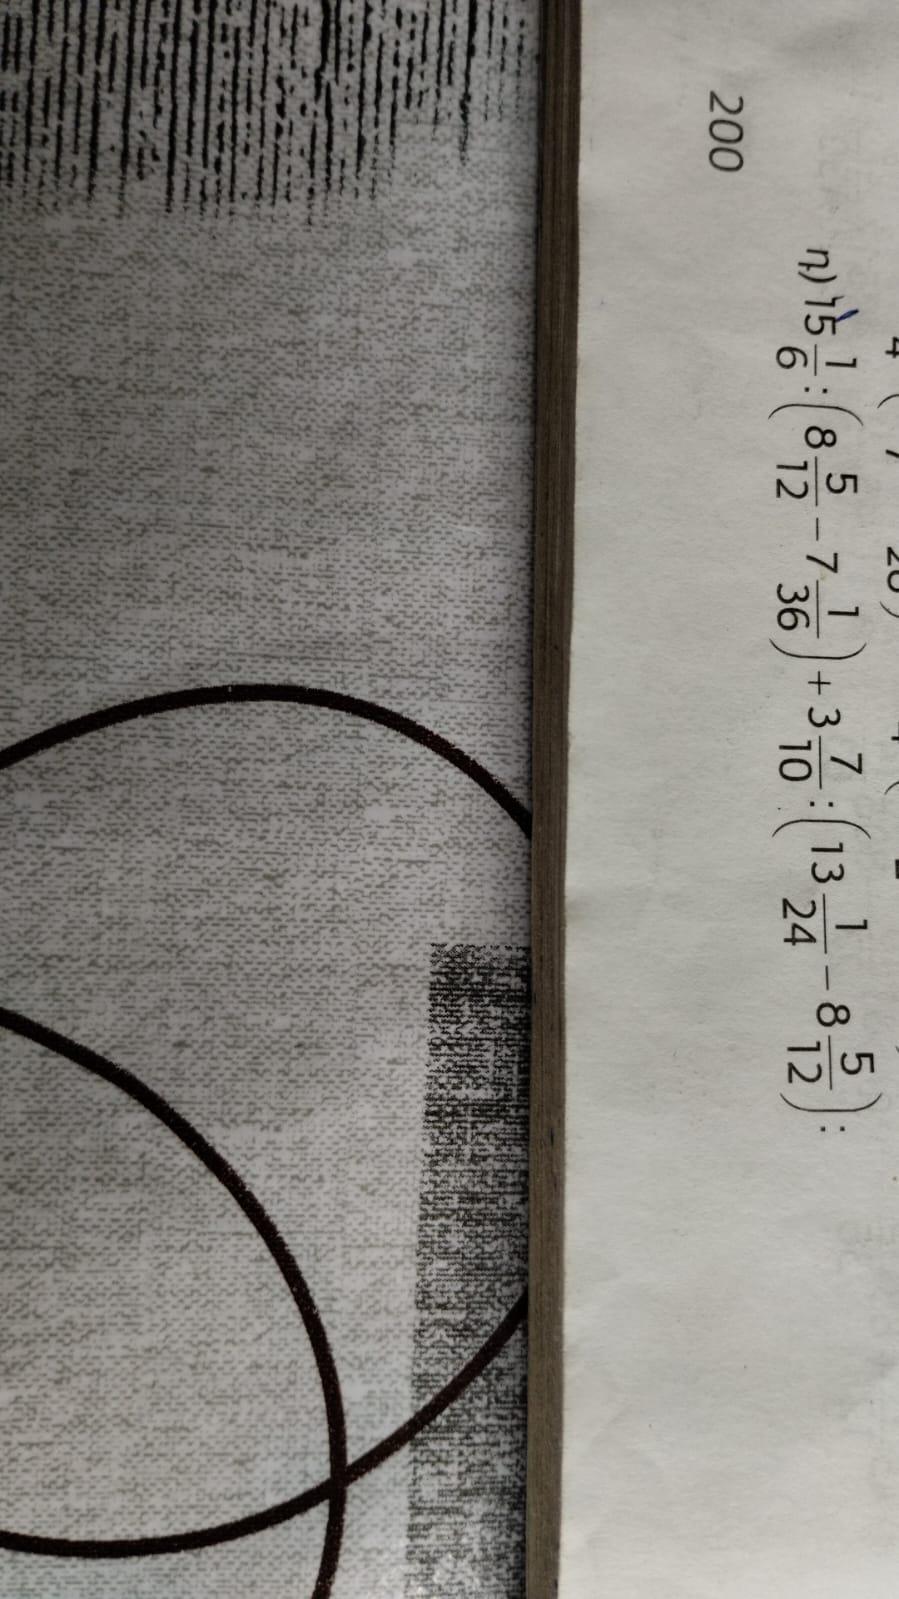 ո) 15 1/6 : (8 5/12 − 7 1/36) + 3 7/10 : (13 1/24 − 8 5/12) :
200